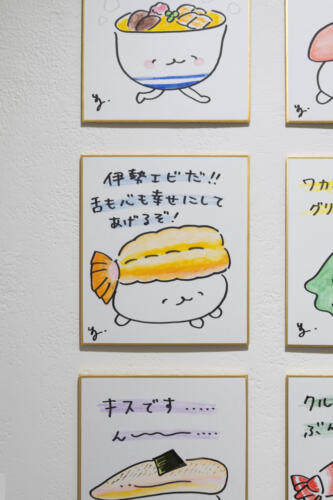 伊勢エビだ!!
舌も心も幸せにして
あげるぞ!
ワカ
グリ
キスです‥‥‥
ん〜〜‥‥‥
クル
ぶん